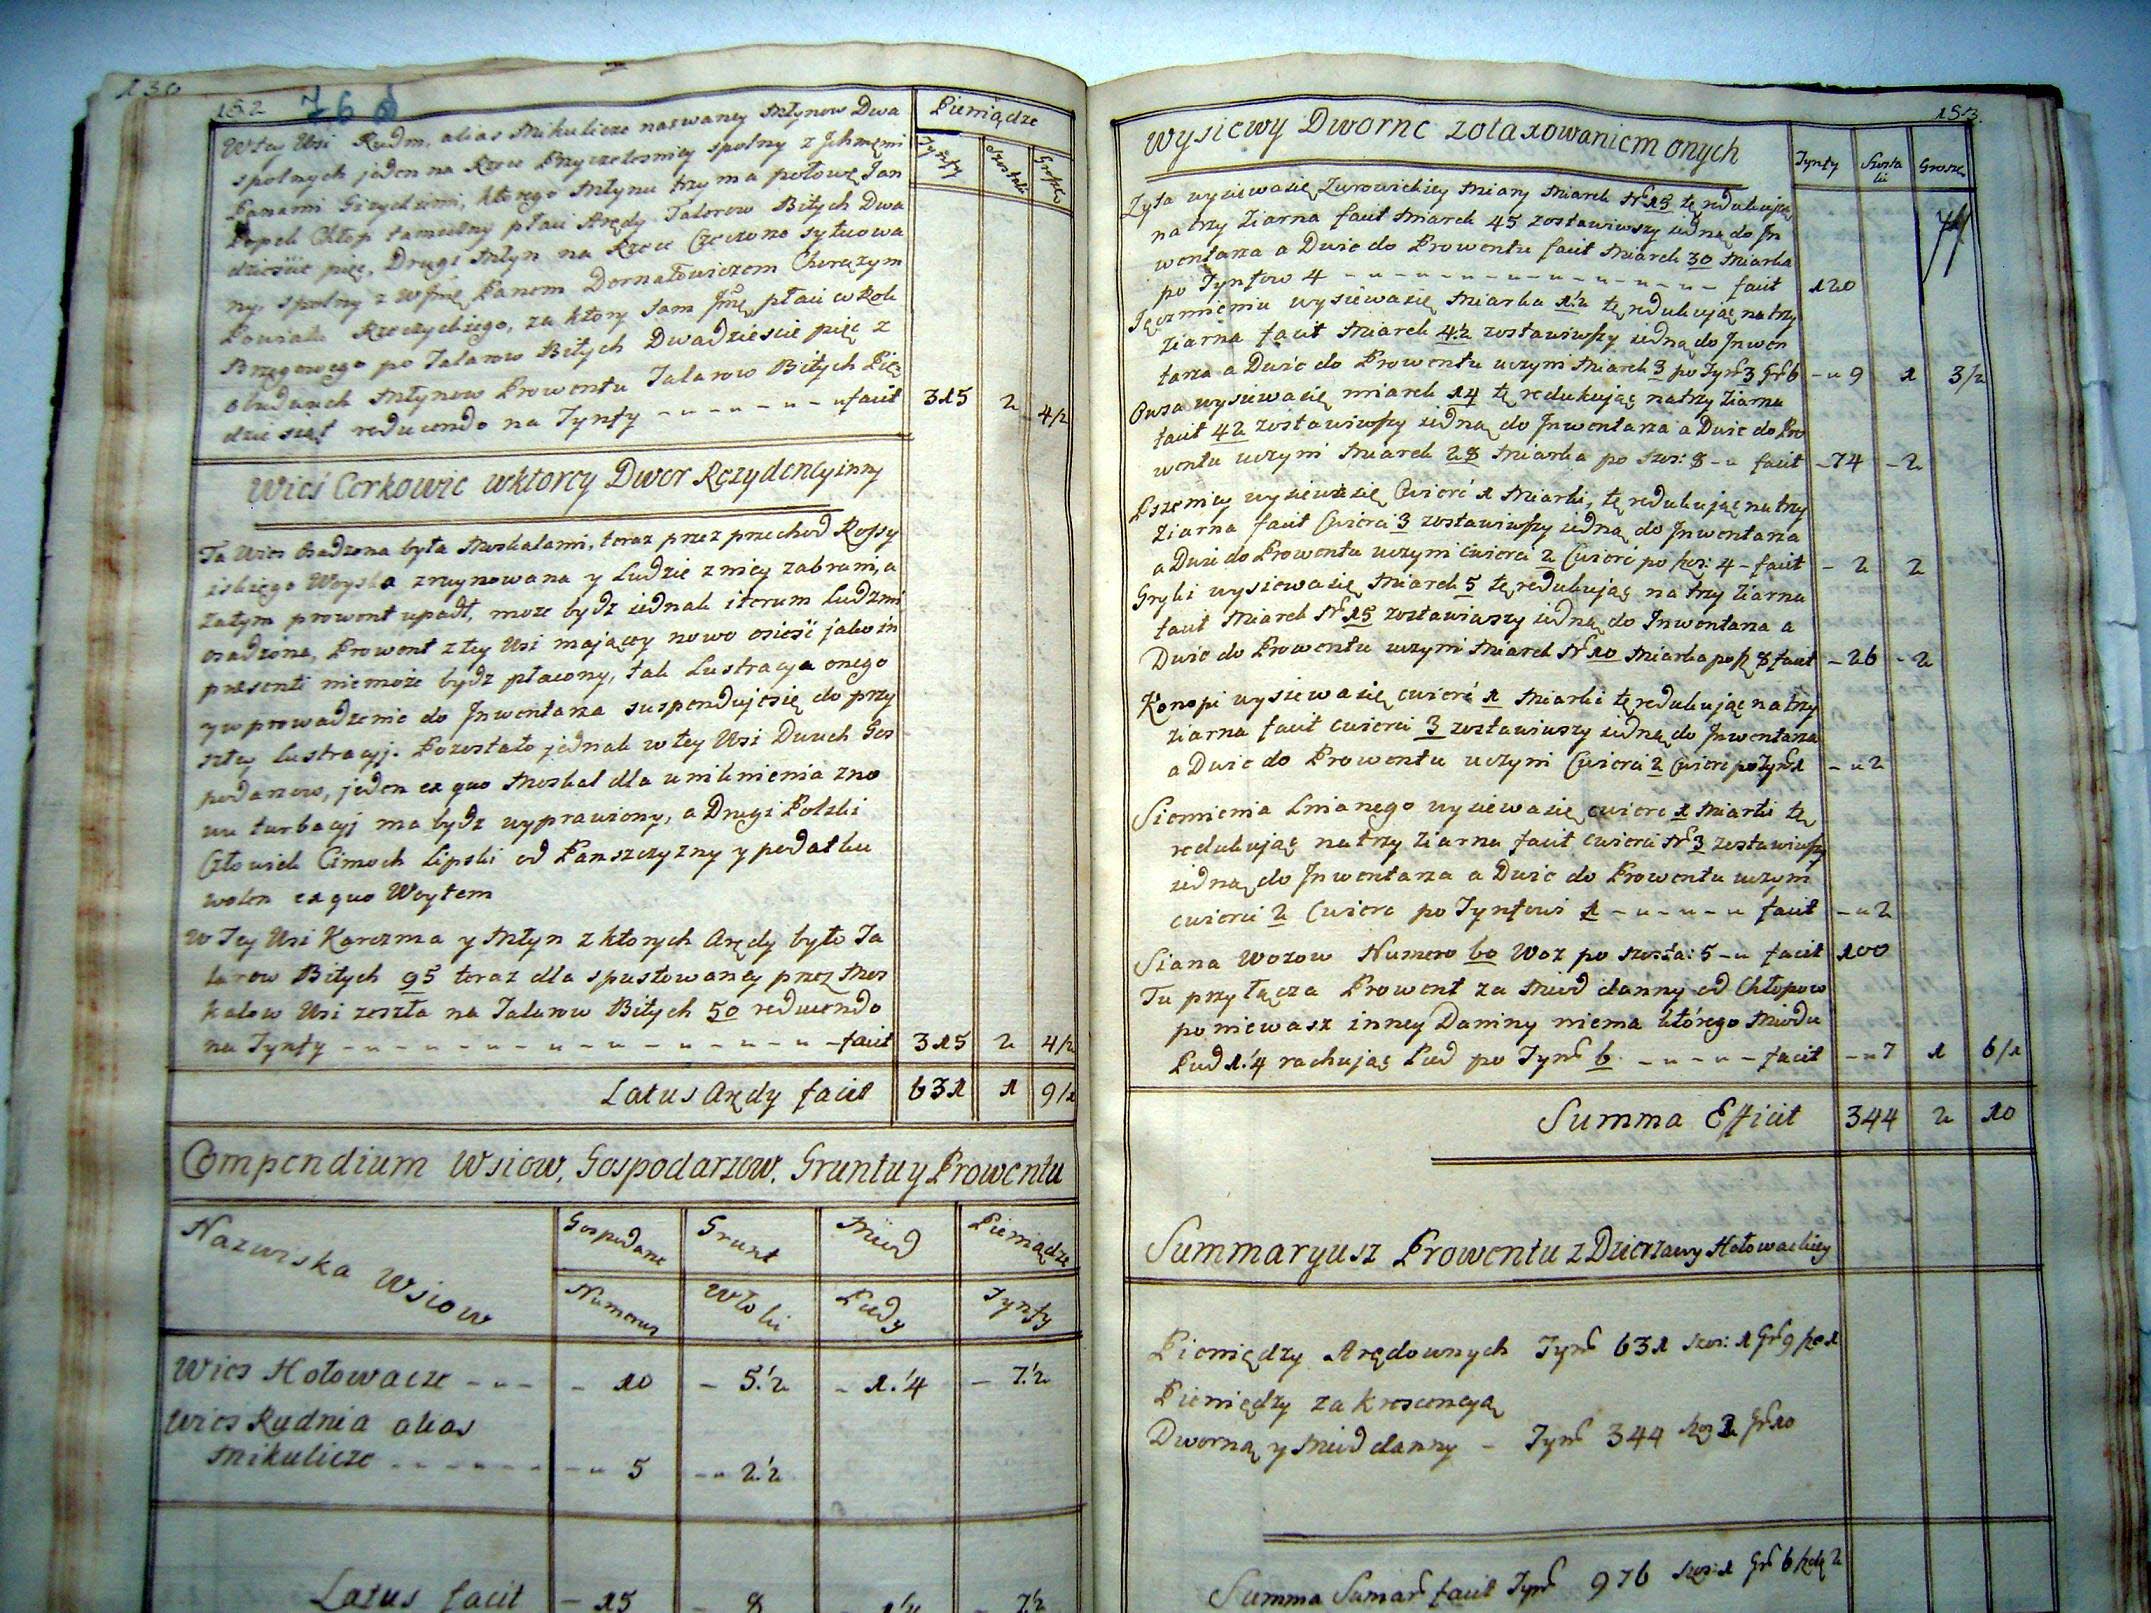 130
152 76
Pieniądze
Tynfy Szostaki Grosze
W tey Wsi Rudni, alias Mikulicze nazwaney Młynow Dwa
spolnych jeden na Rzece spolny z Jchmęmi
Panami Gizyckiemi, ktorego Młynu trzyma połowę Jan
Popek Chłop tameczny płaci Arędy Talerow Bitych Dwa
dzieścia pięć, Drugi Młyn na Rzece sytuowa
ny, spolny z Wmę Panem Dornałowiczem Chorązym
Powiatu Rzeczyckiego, za ktory sam Jmę płaci w Rok
Brzegowego po Talarow Bitych Dwadzieście pięć z
obuduuch Młynow Prowentu Talarow Bitych Pięć
dziesiąt reducendo na Tynfy - u - u - u - u facit 315 2 4/2
Wieś Cerkowie wktorey Dwor Rezydencyinny
Ta Wies Osadzona była Moskalami, teraz przez przechod Rossy
iskiego Woyska zruynowana y Ludzie z niey zabrani, a
zatym prowent upadł, moze bydz iednak iterum Ludzmi
osadzona, Prowent z tey Wsi maiącey nowo osieść jako in
præsenti niemoże bydz płacony, tak Lustracya onego
y wprowadzenie do Jnwentarza suspenduje się do przy
szłey Lustracyj. Pozostało jednak w tey Wsi Dwuch Gos
podarzow, jeden ex quo Moskal dla uniknienia zno
wu turbacyj ma bydz wyprawiony, a Drugi Polski
Człowiek Cimoch Lipski od Panszczyzny y podatku
wolen ex quo Woytem
W Tey Wsi Karczma y Młyn z ktorych Arędy było Ta
larow Bitych 95 teraz dla spustowaney przez Mos
kalow Wsi zeszła na Talarow Bitych 50 reducendo
na Tynfy - u - u - u - u - u - u - u - facit 315 2 4/2
Latus Arędy facit 631 1 9/1
Compendium Wsiow, Gospodarzow, Gruntu y Prowentu
Nazwiska Wsiow Gospodarze Grunt Miod Pieniądze
Numerus Włoki Pudy Tynfy
Wies Hołowacze - - - - 10 - 5.1/2 - 1.1/4 - 7.1/2
Wies Rudnia alias
Mikulicze - - - - - - u 5 - u 2.1/2
Latus facit - 15 - 8 - 1.1/4 - 7.1/2
153
Wysiewy Dworne zotaxowaniem onych
Tynfy Szosta ki Grosze
Zyta wysiewasię Zurowickiey Miary Miarek Nr 15 tę redukując
na trzy Ziarna facit Miarek 45 zostawiwszy iedną do Jn
wentarza a Dwie do Prowentu facit Miarek 30 Miarka
po Tynfow 4 - u - u - u - u - u - u - u - facit 120
Jęczmieniu wysiewasię Miarka 1.1/2 tę redukując na trzy
Ziarna facit Miarek 4.1/2 zostawiwszy iedną do Jnwen
tarza a Dwie do Prowentu uczyni Miarek 3 po Tynf 3 Gr 6 - u 9 1 3/2
Owsa wysiewasię miarek 14 tę redukując na trzy Ziarna
facit 42 zostawiwszy iedną do Jnwentarza a Dwie do Pro
wentu uczyni Miarek 28 Miarka po szos: 8 - u facit - 74 - 2
Pszenicy wysiewasię Cwierć 1 Miarki, tę redukując na trzy
Ziarna facit Cwierci 3 zostawiwszy iedną do Jnwentarza
a Dwie do Prowentu uczyni Cwierci 2 Cwierć po szos: 4 - facit - 2 2
Gryki wysiewasię Miarek 5 tę redukując na trzy Ziarna
facit Miarek Nr 15 zostawiwszy iedną do Jnwentarza a
Dwie do Prowentu uczyni Miarek Nr 10 Miarka po sz 8 facit - 26 - 2
Konopi wysiewasię cwierć 1 Miarki tę redukując na trzy
Ziarna facit cwierci 3 zostawiwszy iedną do Jnwentarza
a Dwie do Prowentu uczyni Cwierci 2 Cwierć po Tynf 1 - u 2
Siemienia Lnianego wysiewasię cwierc 1 Miarki tę
redukując na trzy Ziarna facit cwierci Nr 3 zostawiwszy
iedną do Jnwentarza a Dwie do Prowentu uczyni
cwierci 2 Cwierc po Tynfowi 1 - u - u - u facit - u 2
Siana Wozow Numero 60 Woz po szosta: 5 - u facit 100
Tu przyłącza Prowent za Miod danny od Chłopow
poniewasz inney Daniny niema którego Miodu
Pud 1.1/4 rachując Pud po Tynf 6 - u - u - facit - u 7 1 6/1
Summa Efficit 344 2 10
Summaryusz Prowentu z Dzierzawy Hołowackiey
Pieniędzy Arędownych Tynf 631 szos: 1 Gr 9 sze 1
Pieniędzy za krescencyą
Dworną y Miod danny - Tynf 344 szos 2 Gr 10
Summa Sumar facit Tynf 976 szos: 1 Gr 6 szelą 2